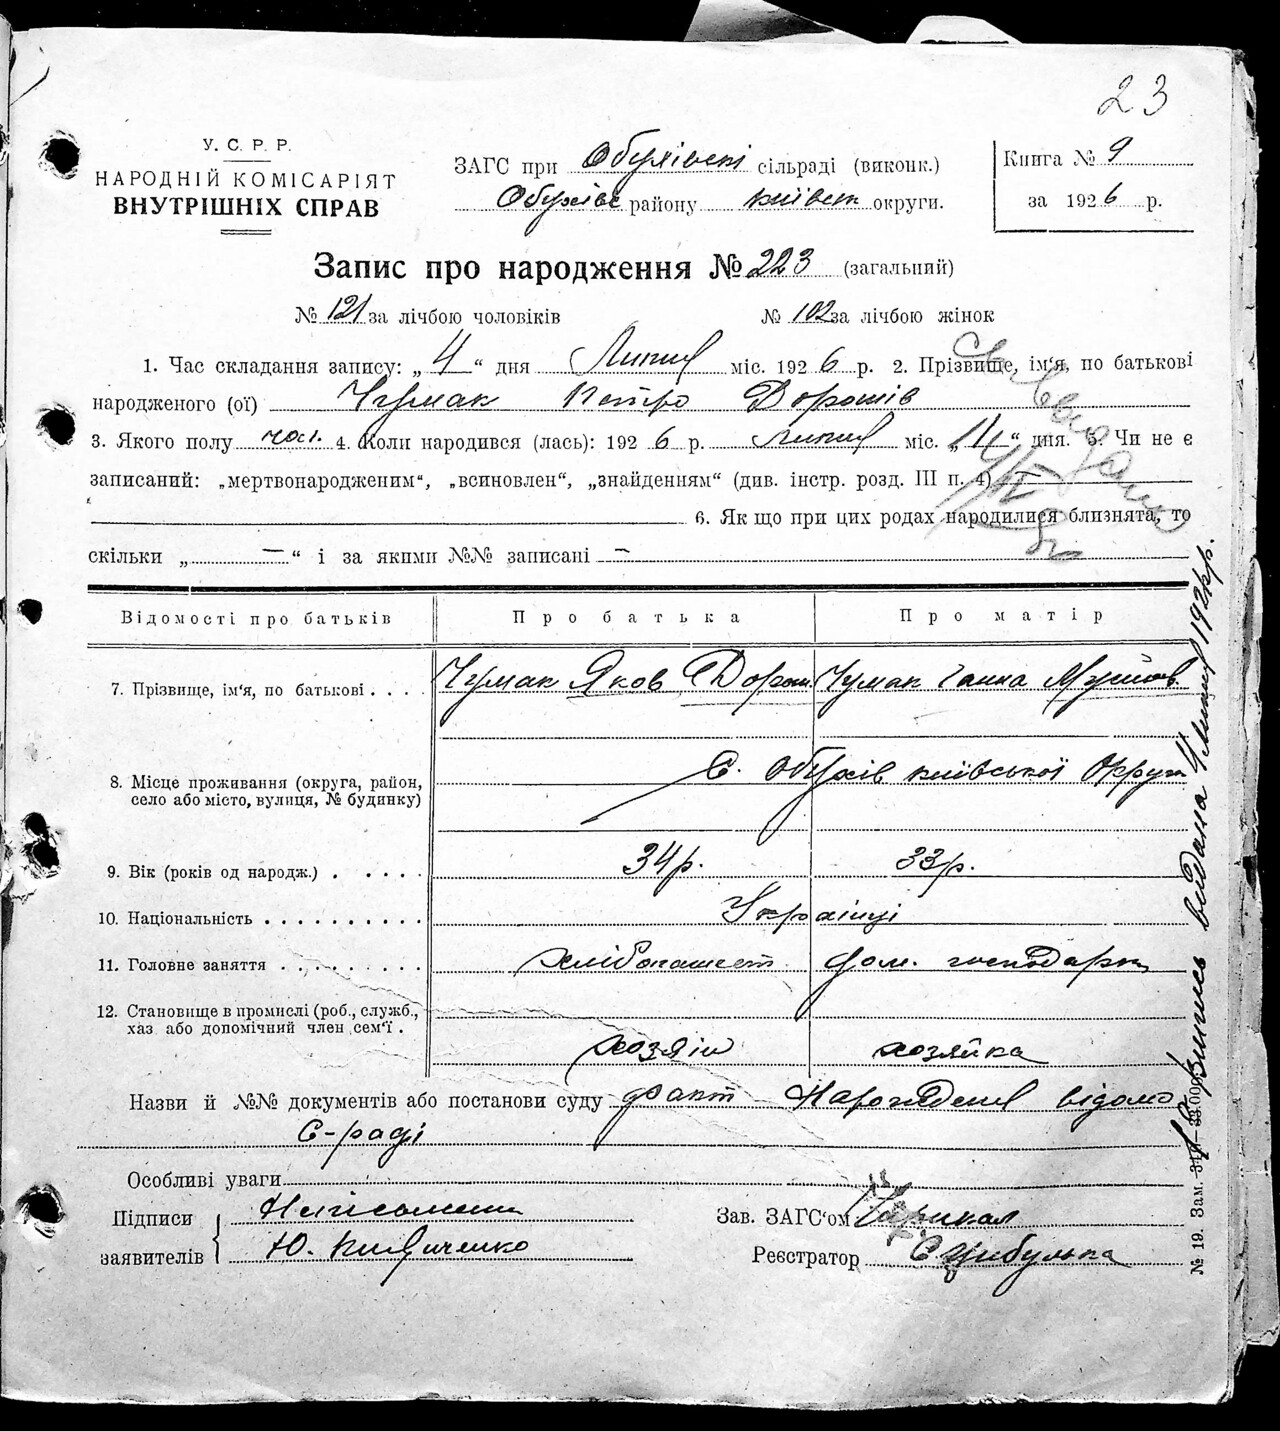 23
У. С. Р. Р.
НАРОДНІЙ КОМІСАРІЯТ
ВНУТРІШНІХ СПРАВ
ЗАГС при Обухівскі сільраді (виконк.)
Обухівс району київськ округи.
Книга № 9
за 1926 р.
Запис про народження № 223 (загальний)
№ 121 за лічбою чоловіків № 102 за лічбою жінок
1. Час складання запису: „ 4 “ дня Липня міс. 1926 р. 2. Прізвище, ім'я, по батькові
народженого (ої) Чумак Петро Дорошів
3. Якого полу чол. 4. Коли народився (лась): 1926 р. липня міс. „ “ дня. 5. Чи не є
записаний: „мертвонародженим“, „всиновлен“, „знайденням“ (див. інстр. розд. III п. 4) —
6. Як що при цих родах народилися близнята, то
скільки „ — “ і за якими №№ записані —
Відомості про батьків Про батька Про матір
7. Прізвище, ім'я, по батькові . . . . Чумак Яков Дорош. Чумак Ганна
8. Місце проживання (округа, район,
село або місто, вулиця, № будинку)
С. Обухів київської Округи
9. Вік (років од народж.) . . . . . . 34р. 33р.
10. Національність . . . . . . . . . . Українці
11. Головне заняття . . . . . . . . . хлібопашест. дом. господарк
12. Становище в промислі (роб., служб.,
хаз або допомічний член сем'ї .
хозяін хозяйка
Назви й №№ документів або постанови суду факт Народження відомо
С-раді
Особливі уваги
Підписи
заявителів
Неписьмени
Ю. Кириченко
Зав. ЗАГС'ом
Реєстратор С. Цибулька
Випись видана 4 Липня 192 р.
№ 19. Зам.